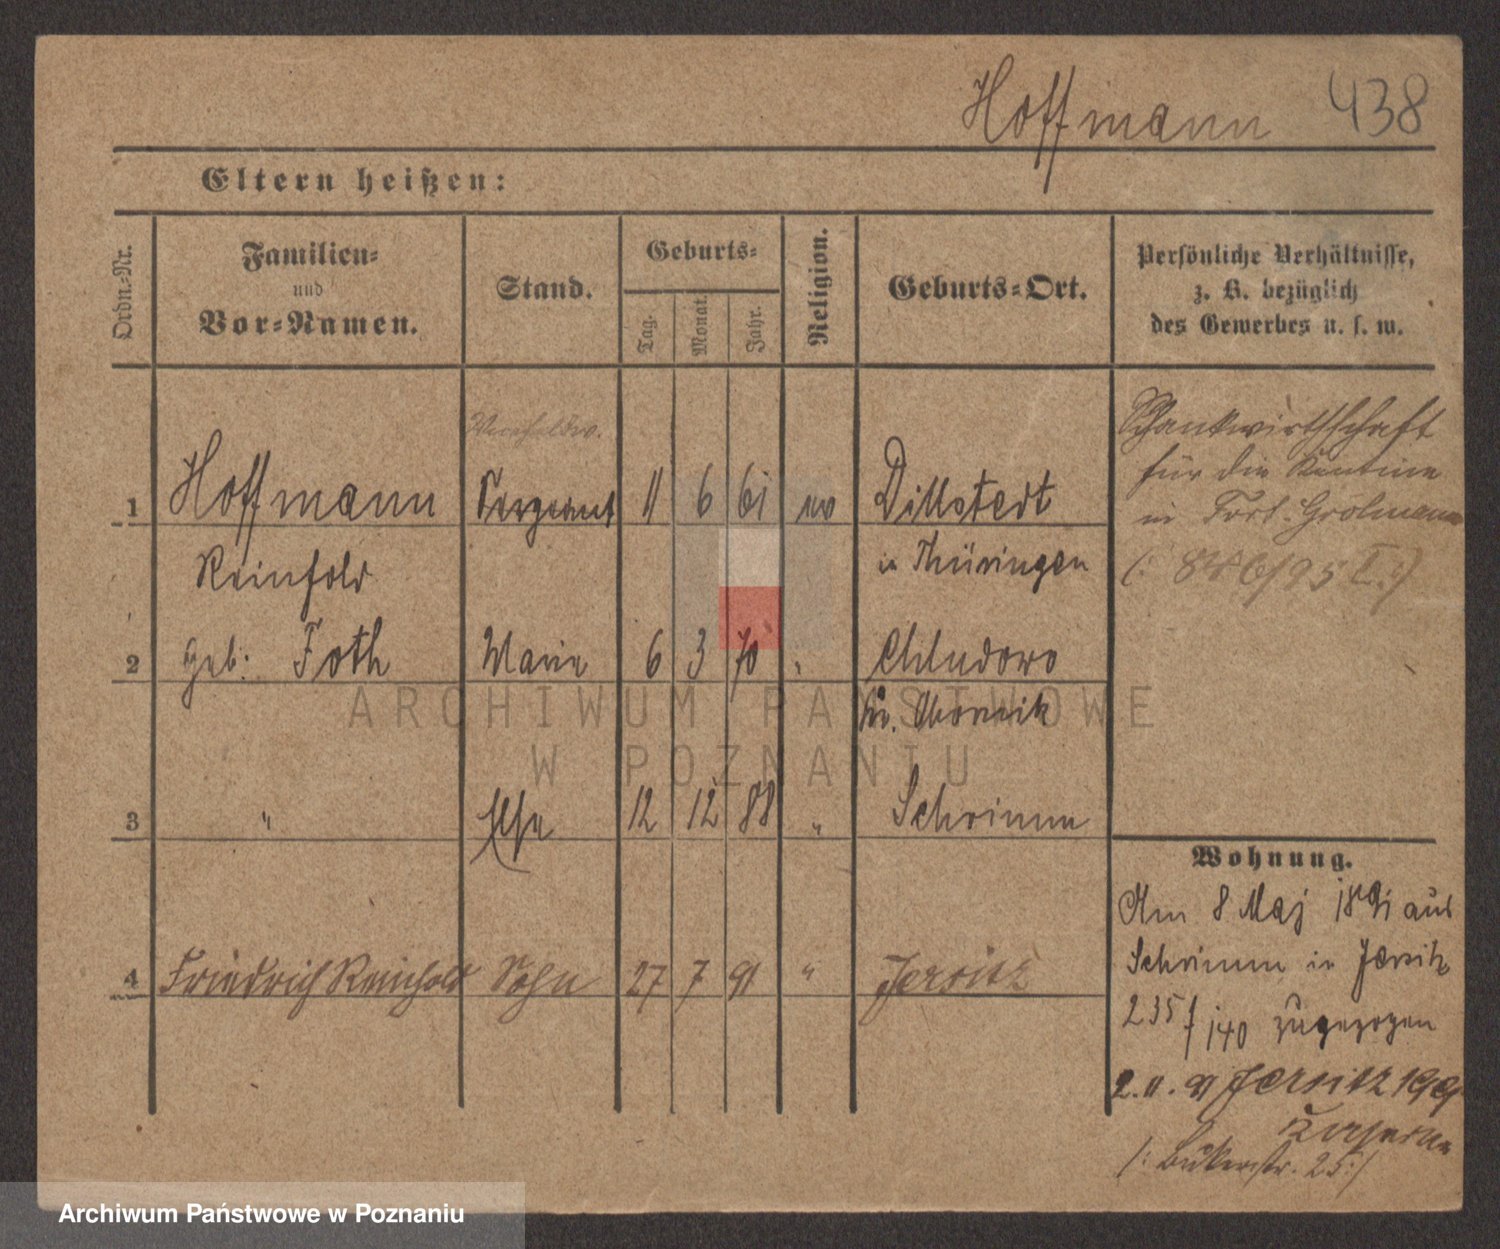 Hoffmann 438
Eltern heißen:
Ordn.-Nr.
Familien-
und
Vor-Namen.
Stand.
Geburts-
Tag.
Monat.
Jahr.
Religion.
Geburts-Ort.
Persönliche Verhältnisse,
z. B. bezüglich
des Gewerbes u. s. w.
1 Hoffmann Sergeant 11 6 61 ev Dillstedt
Reinhold in Thüringen
2 geb: Foth Marie 6 3 70 " Chludowo
Kr. Obornik
3 " Else 12 12 88 " Schrimm
4 Friedrich Reinhold Sohn 27 7 91 " Jersitz
Schankwirthschaft
für die Kantine
in Fort. Grolmann
(: 846/95 I.:)
Wohnung.
Am 8 Maj 1891 aus
Schrimm in Jersitz
235/140 zugezogen
2. 11. 91 Jersitz
Kaserne
/: Bukerstr. 25:/
ARCHIWUM PAŃSTWOWE
W POZNANIU
Archiwum Państwowe w Poznaniu